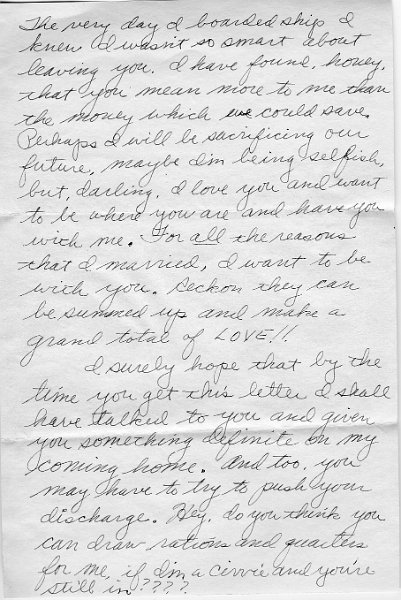 The very day I boarded ship I
knew I wasn't so smart about
leaving you. I have found, honey,
that you mean more to me than
the money which we could save.
Perhaps I will be sacrificing our
future, maybe I'm being selfish,
but, darling, I love you and want
to be where you are and have you
with me. For all the reasons
that I married, I want to be
with you. Reckon they can
be summed up and make a
grand total of LOVE!!
I surely hope that by the
time you get this letter I shall
have talked to you and given
you something definite on my
coming home. And too, you
may have to try to push your
discharge. Hey, do you think you
can draw rations and quarters
for me, if I'm a civvie and you're
still in????